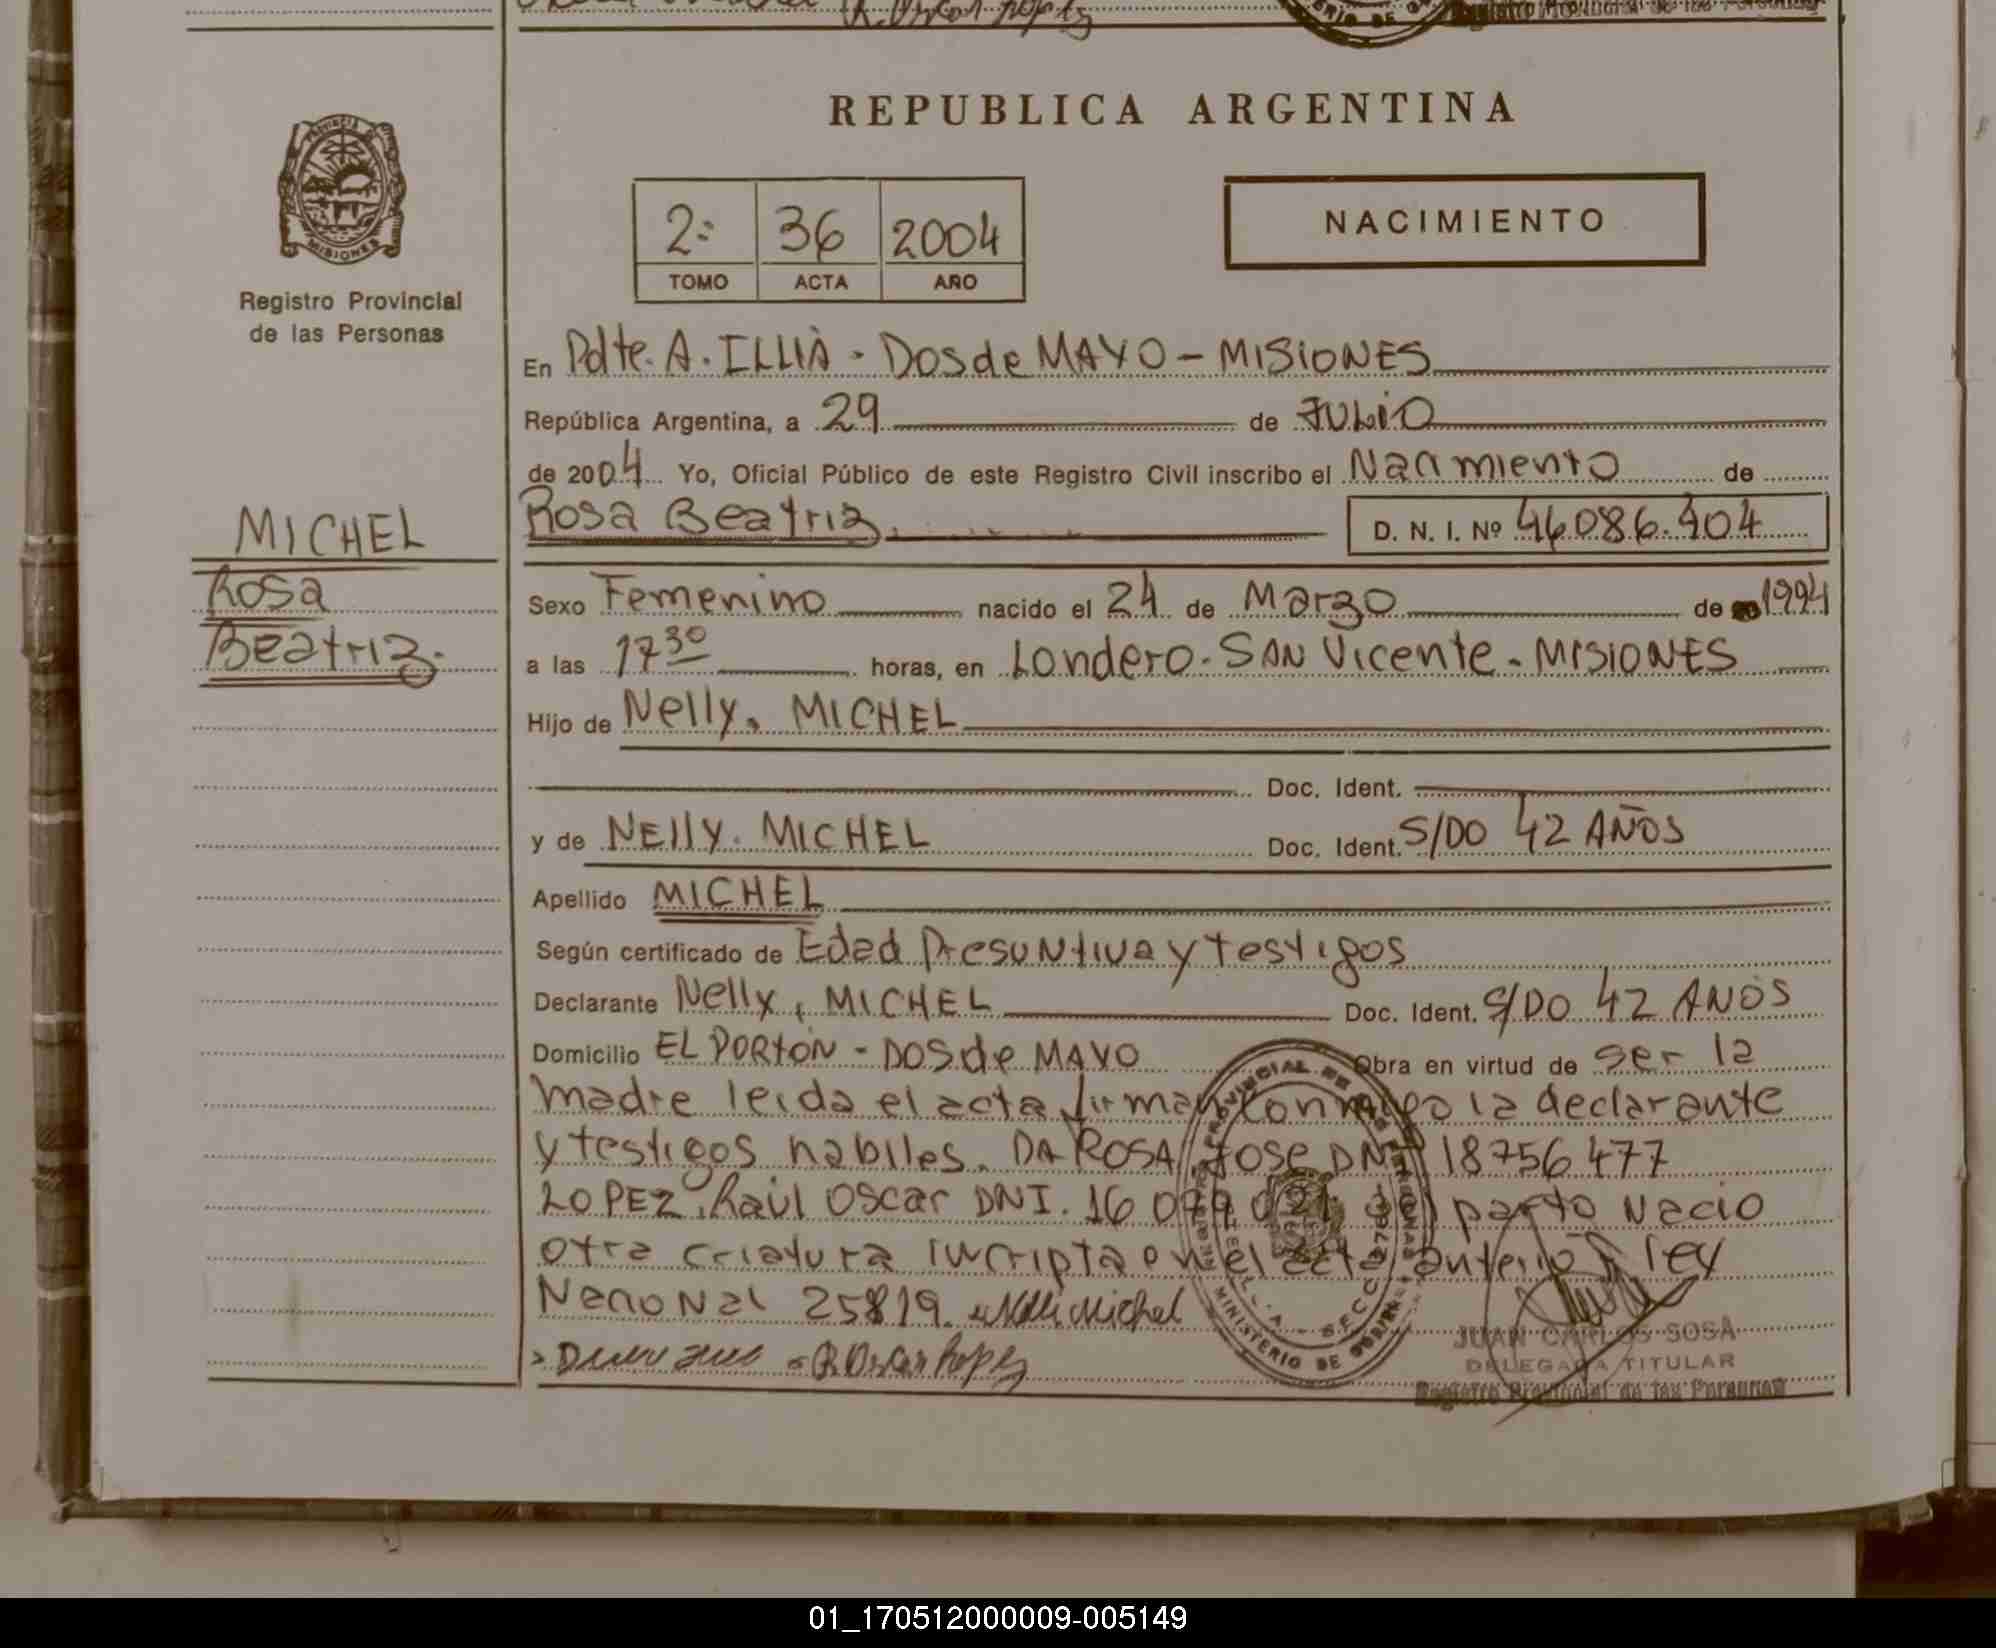 REPUBLICA ARGENTINA
PROVINCIA DE
MISIONES
Registro Provincial
de las Personas
2º 36 2004
TOMO ACTA AÑO
NACIMIENTO
En Pdte. A. ILLIA - DOS de MAYO - MISIONES
República Argentina, a 29 de JULIO
de 2004 Yo, Oficial Público de este Registro Civil inscribo el Nacimiento de
Rosa Beatriz D. N. I. Nº 46.086.404
MICHEL
Rosa
Beatriz
Sexo Femenino nacido el 24 de Marzo de 1994
a las 17 30 horas, en Londero - SAN Vicente - MISIONES
Hijo de Nelly, MICHEL
Doc. Ident.
y de NElly. MICHEL Doc. Ident. S/DO 42 AÑOS
Apellido MICHEL
Según certificado de Edad Presuntiva y testigos
Declarante Nelly, MICHEL Doc. Ident. S/DO 42 AÑOS
Domicilio EL PORTÓN - DOS de MAYO Obra en virtud de ser la
madre leida el acta firman conmigo la declarante
y testigos habiles. DA ROSA, Jose DNI 18756477
LOPEZ, Raúl Oscar DNI. 16 del parto Nacio
otra criatura incripta en el acta anterior ley
Nacional 25819. Michel
R. Oscar Lopez
JUAN CARLOS SOSA
DELEGADA TITULAR
Registro Provincial de las Personas
01_170512000009-005149